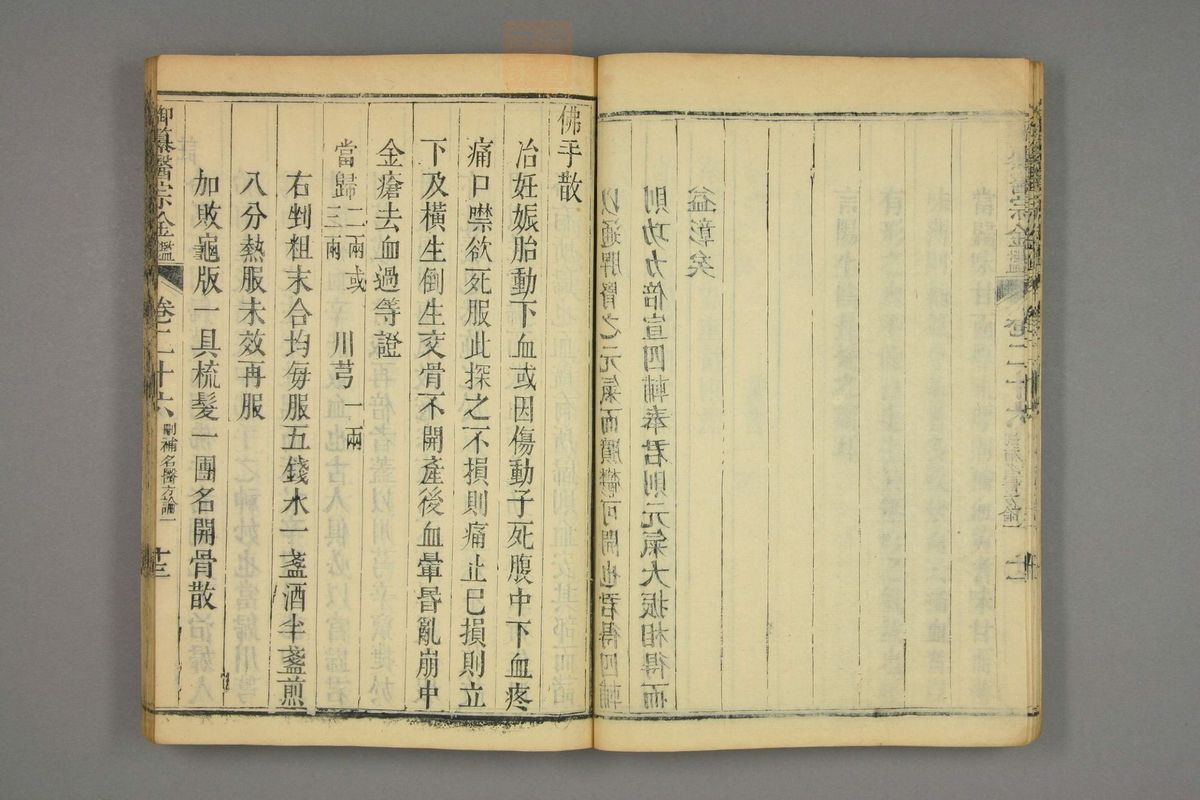 以通脾腎之元氣而膹鬱可開也君得四輔
則功力倍宣四輔奉君則元氣大振相得而
益彰矣
佛手散
治妊娠胎動下血或因傷動子死腹中下血疼
痛口噤欲死服此探之不損則痛止已損則立
下及橫生倒生交骨不開產後血暈昏亂崩中
金瘡去血過等證
當歸二兩或三兩 川芎一兩
右剉粗末合均每服五錢水一盞酒半盞煎
八分熱服未效再服
加敗龜版一具梳髮一團名開骨散
御纂醫宗金鑑 卷二十六 刪補名醫方論一 十三